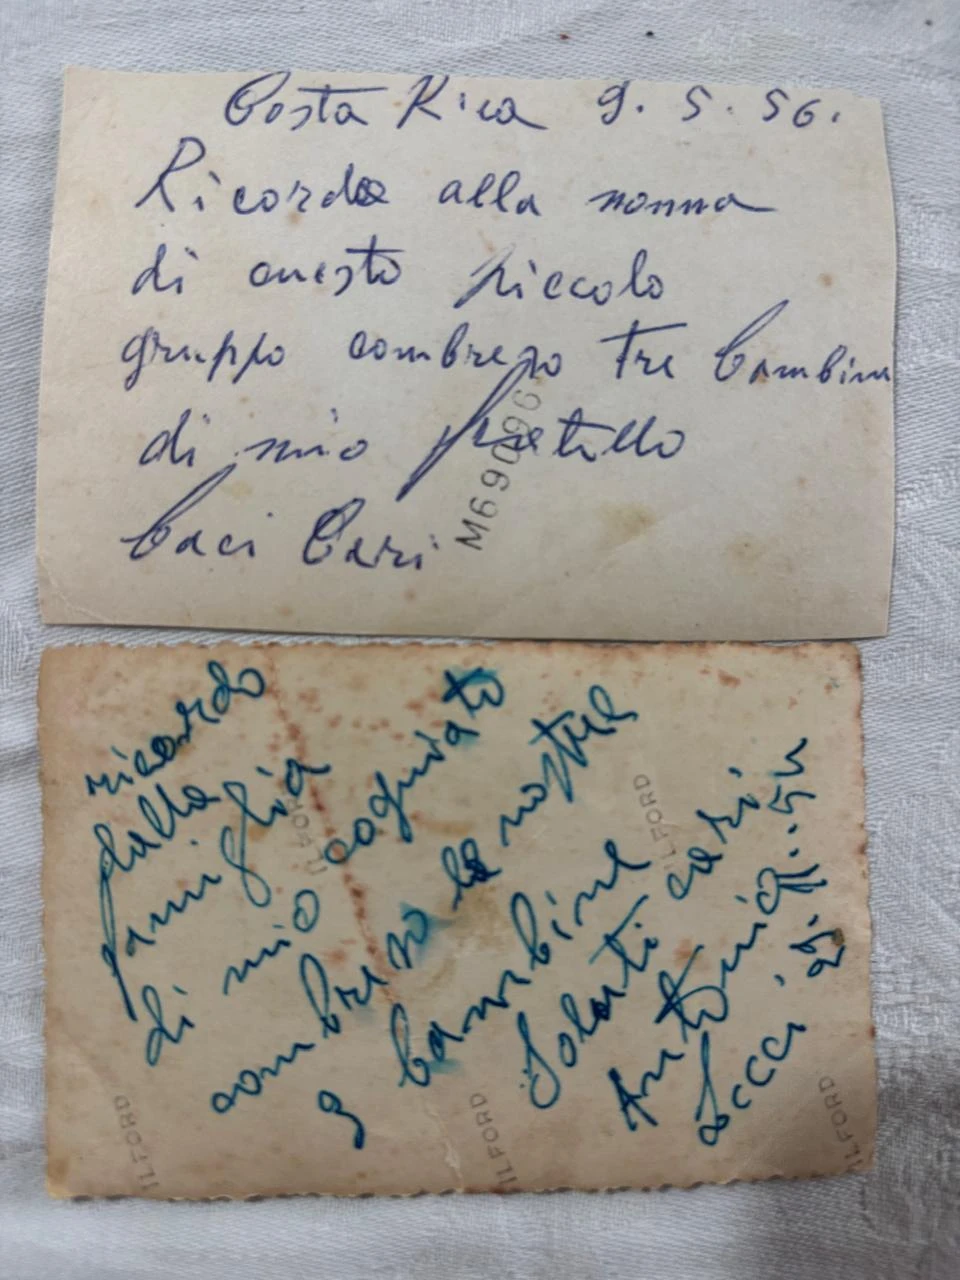 Costa Rica 9. 5. 56.
Ricordo alla nonna
di questo piccolo
gruppo combreso tre bambini
di mio fratello
baci cari
M690996
ricordo
dalla
famiglia
di mio cognato
combreso le nostre
2 bambine
Saluti cari
Antonia
Locci
ILFORD
ILFORD
ILFORD
ILFORD
ILFORD